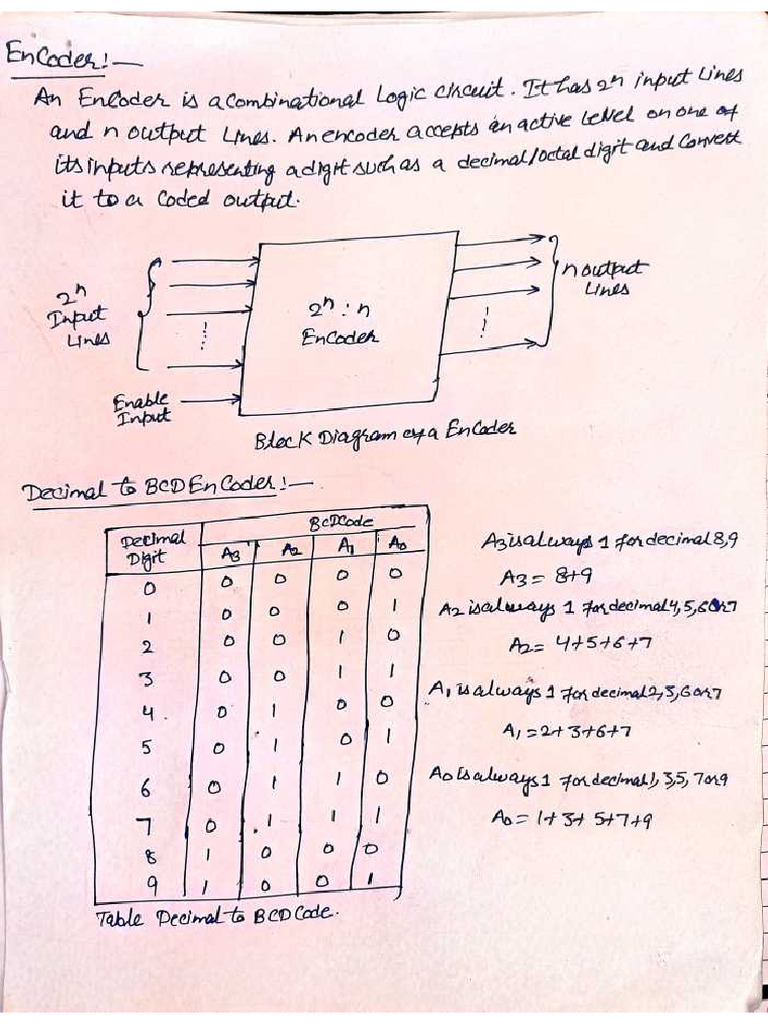 EnCoder:—
An Encoder is a combinational Logic circuit. It has 2ⁿ input Lines
and n output Lines. An encoder accepts an active Level on one of
its inputs representing a digit such as a decimal/octal digit and Convert
it to a Coded output.
2ⁿ
Input
Lines
Enable
Input
2ⁿ : n
EnCoder
n output
Lines
Block Diagram of a Encoder
Decimal to BCD EnCoder:—
Decimal Digit BCD Code
A3 A2 A1 A0
0 0 0 0 0
1 0 0 0 1
2 0 0 1 0
3 0 0 1 1
4 0 1 0 0
5 0 1 0 1
6 0 1 1 0
7 0 1 1 1
8 1 0 0 0
9 1 0 0 1
Table Decimal to BCD Code.
A3 is always 1 for decimal 8,9
A3 = 8+9
A2 is always 1 for decimal 4,5,6 or 7
A2 = 4+5+6+7
A1 is always 1 for decimal 2,3,6 or 7
A1 = 2+3+6+7
A0 is always 1 for decimal 1,3,5,7 or 9
A0 = 1+3+5+7+9